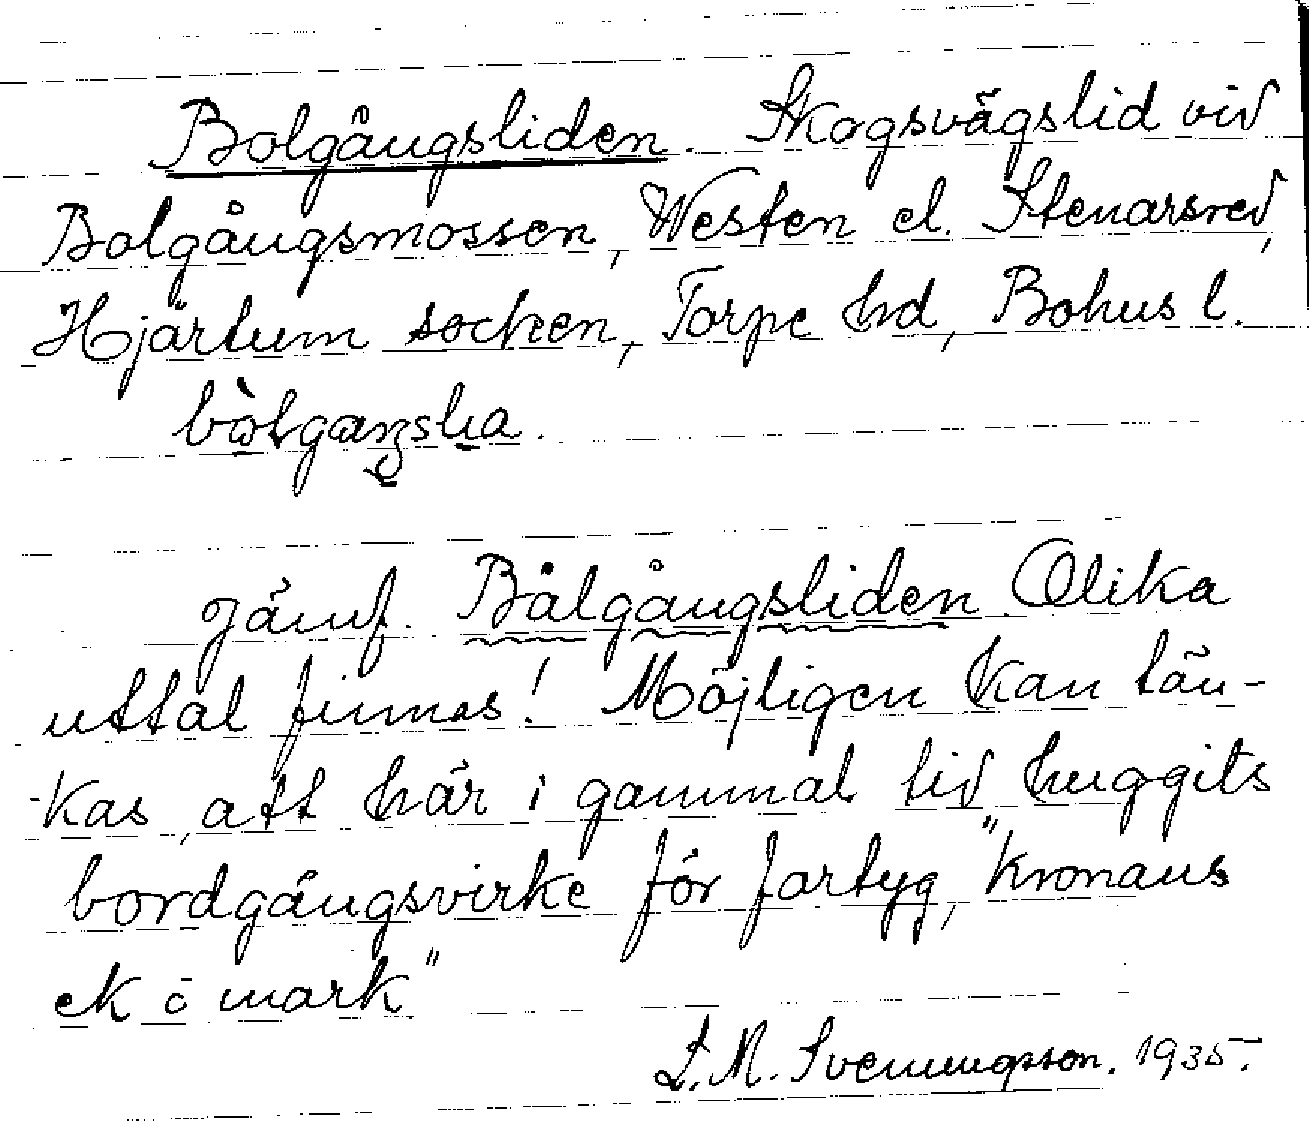 Bolgångsliden. Skogsvägslid vid
Bolgångsmossen, Westen el. Stenarsred,
Hjärtum socken, Torpe hd, Bohus l.
Jämf. Bålgångsliden. Olika
uttal finnes! Möjligen kan tän-
kas, att här i gammal tid huggits
bordgångsvirke för fartyg, "kronans
ek å mark"
L. M. Svenungsson. 1935.